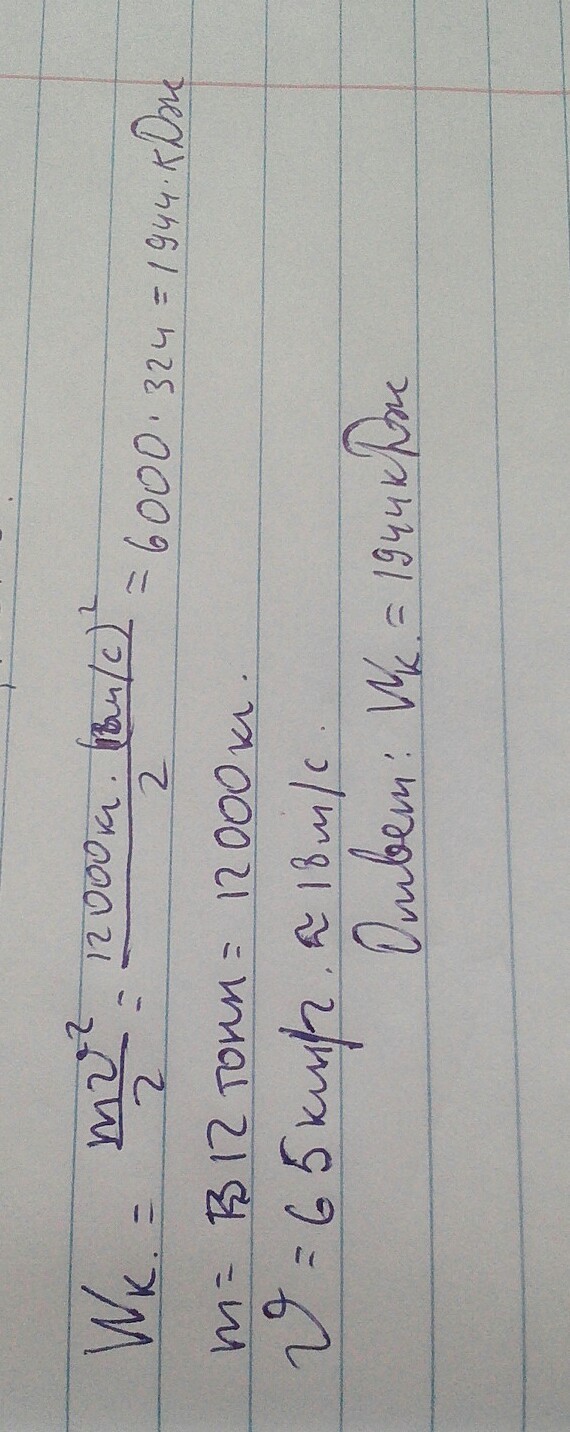 Wк. = mv²/2 = 12000кг · (18м/с)²/2 = 6000 · 324 = 1944 · кДж
m = 12 тонн = 12000 кг.
v = 65 км/ч. ≈ 18 м/с.
Ответ: Wк. = 1944 кДж